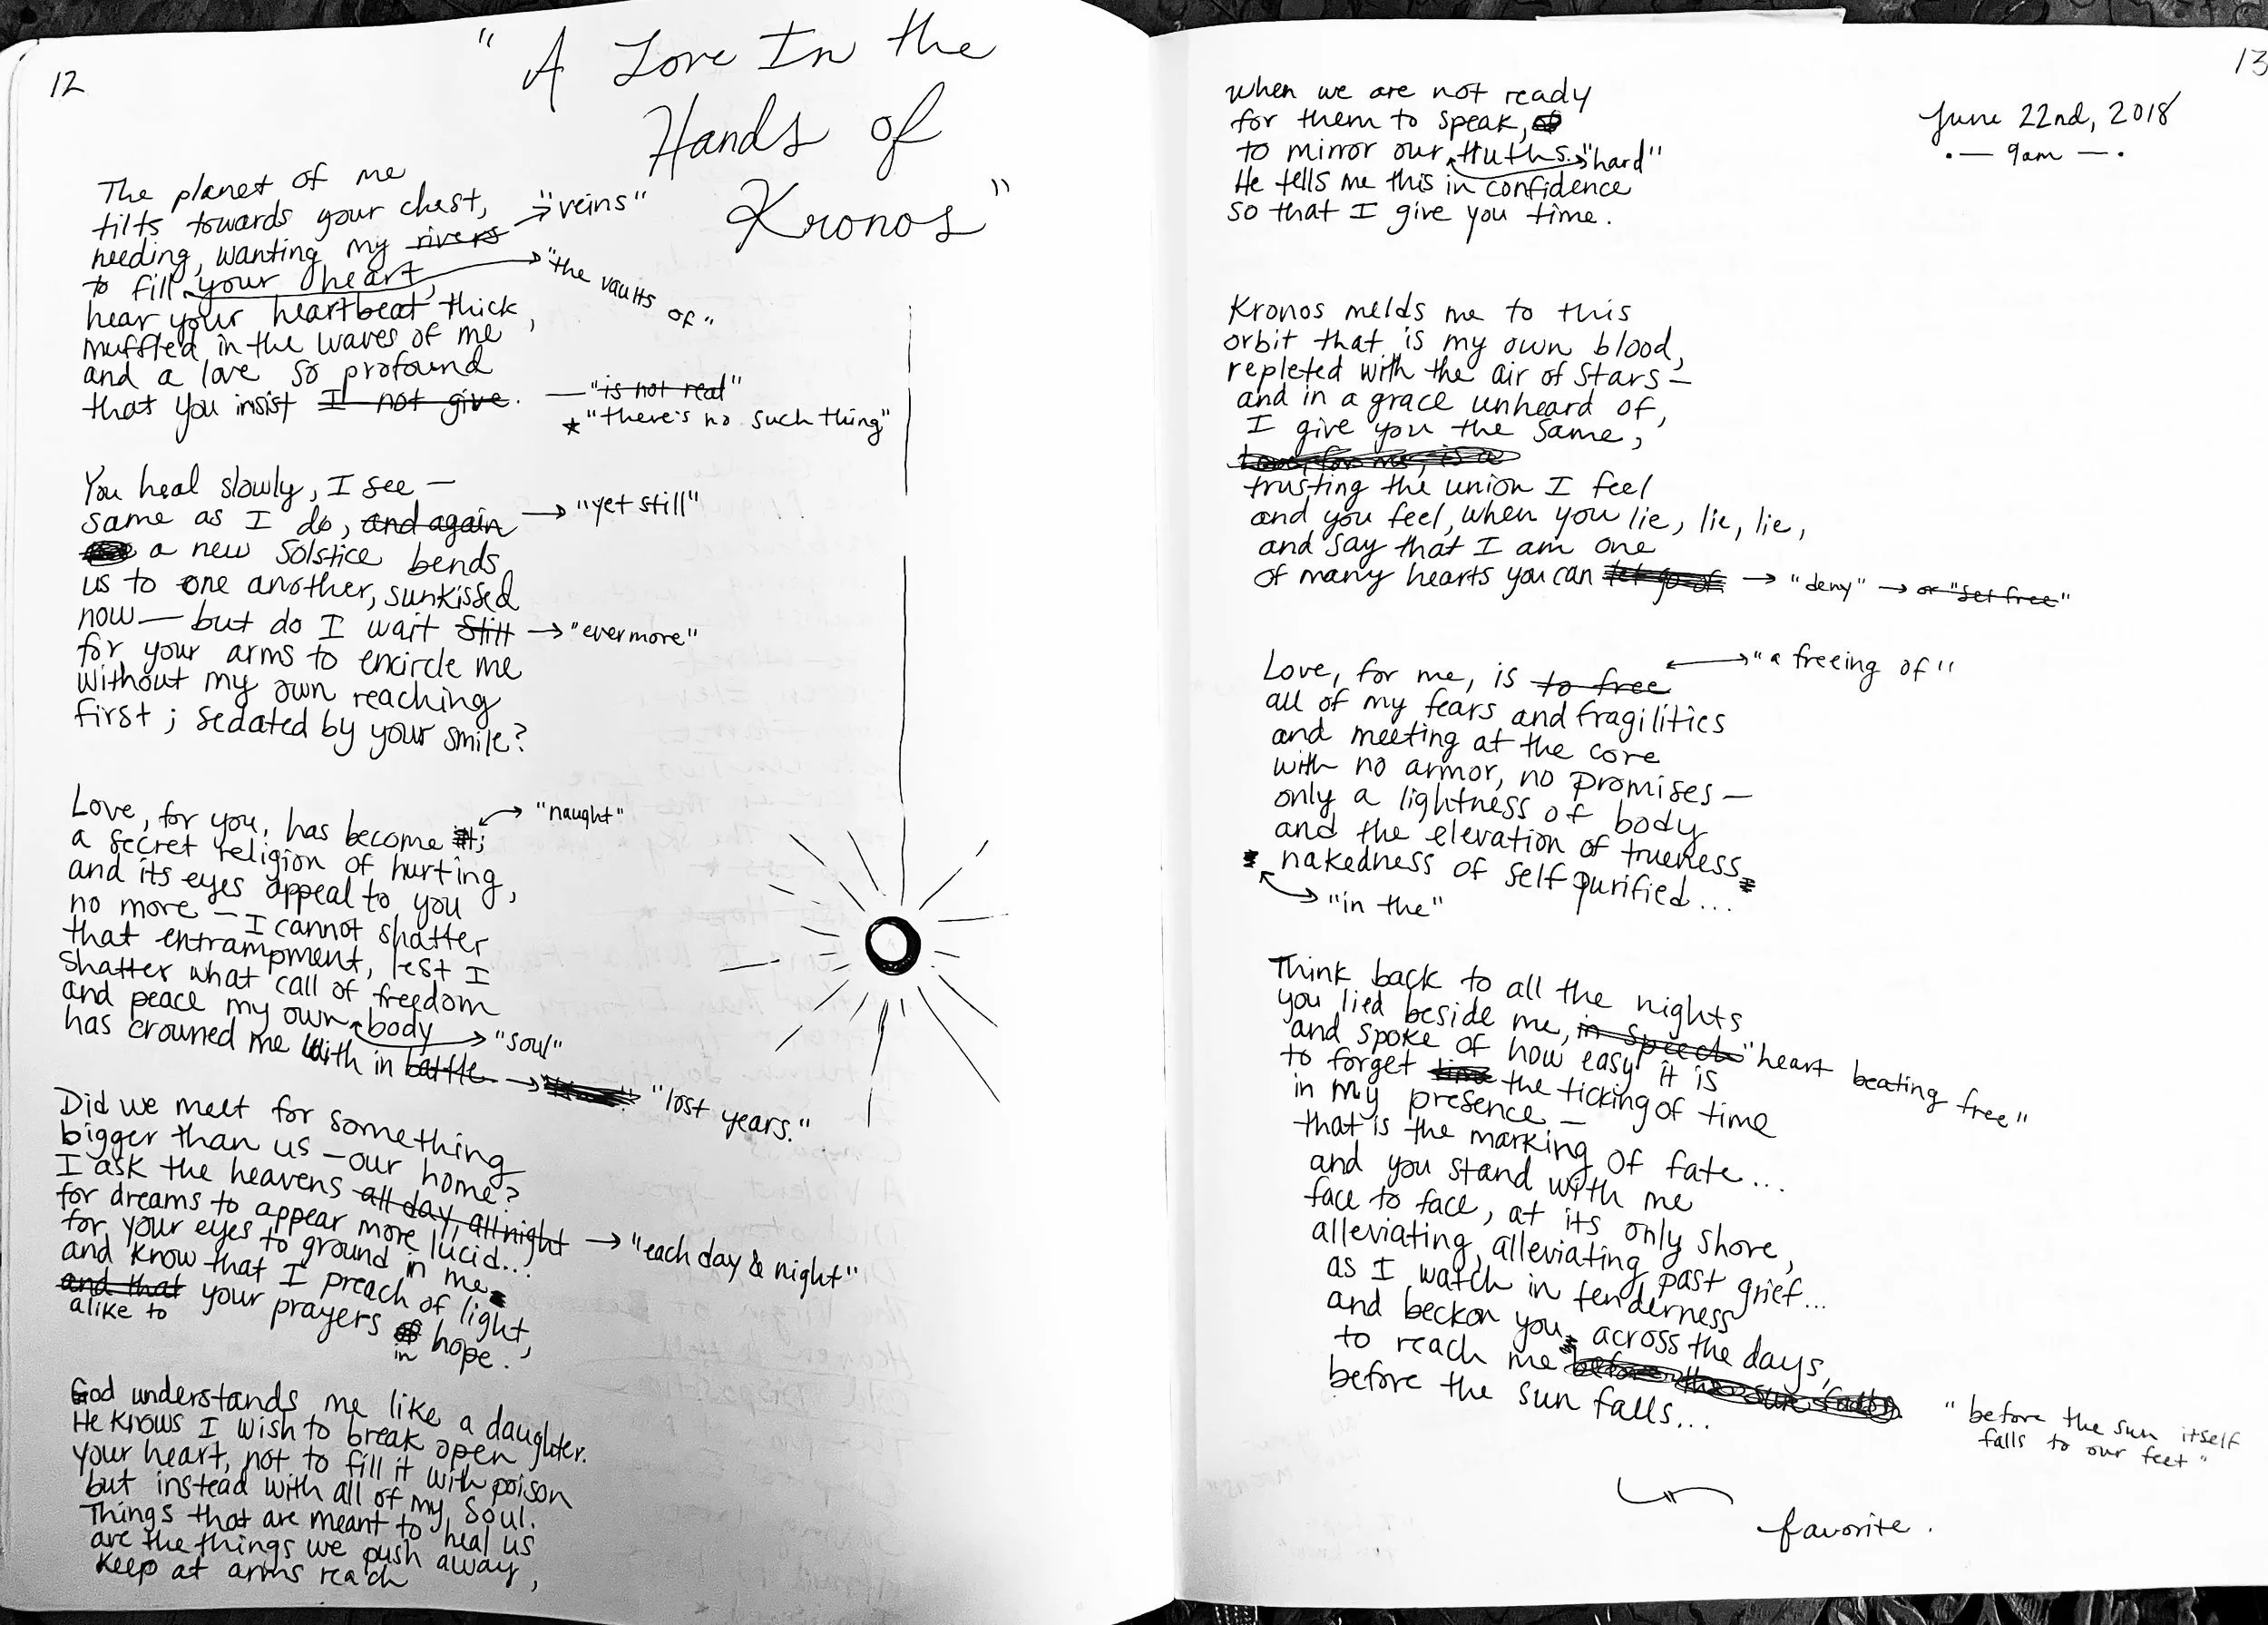 12
"A Love In the
Hands of
Kronos"
The planet of me
tilts towards your chest,
needing, wanting my rivers → "veins"
to fill your heart, → "the vaults of"
hear your heartbeat thick,
muffled in the waves of me
and a love so profound
that you insist I not give. — "is not real"
* "there's no such thing"
You heal slowly, I see —
same as I do, and again → "yet still"
a new solstice bends
us to one another, sunkissed
now — but do I wait still → "evermore"
for your arms to encircle me
without my own reaching
first; sedated by your smile?
Love, for you, has become it; → "naught"
a secret religion of hurting,
and its eyes appeal to you
no more — I cannot shatter
that entrampment, lest I
shatter what call of freedom
and peace my own body → "soul"
has crowned me with in battle. → "lost years."
Did we melt for something
bigger than us — our home?
I ask the heavens all day, all night → "each day & night"
for dreams to appear more lucid...
for your eyes to ground in me
and know that I preach of light,
and that your prayers of hope.
alike to in
God understands me like a daughter.
He knows I wish to break open
your heart, not to fill it with poison
but instead with all of my soul.
Things that are meant to heal us
are the things we push away,
keep at arms reach
13
June 22nd, 2018
•— 9am —•
when we are not ready
for them to speak,
to mirror our truths. → "hard"
He tells me this in confidence
so that I give you time.
Kronos melds me to this
orbit that is my own blood,
repleted with the air of stars —
and in a grace unheard of,
I give you the same,
Love, for me, is a
trusting the union I feel
and you feel, when you lie, lie, lie,
and say that I am one
of many hearts you can let go of → "deny" → or "set free"
Love, for me, is to free ↔ "a freeing of"
all of my fears and fragilities
and meeting at the core
with no armor, no promises —
only a lightness of body
and the elevation of trueness
nakedness of self purified...
"in the"
Think back to all the nights
you lied beside me, in speech "heart beating free"
and spoke of how easy it is
to forget time the ticking of time
in my presence —
that is the marking of fate...
and you stand with me
face to face, at its only shore,
alleviating, alleviating past grief...
as I watch in tenderness
and beckon you across the days,
to reach me before the sun falls
before the sun falls...
"before the sun itself
falls to our feet"
favorite.